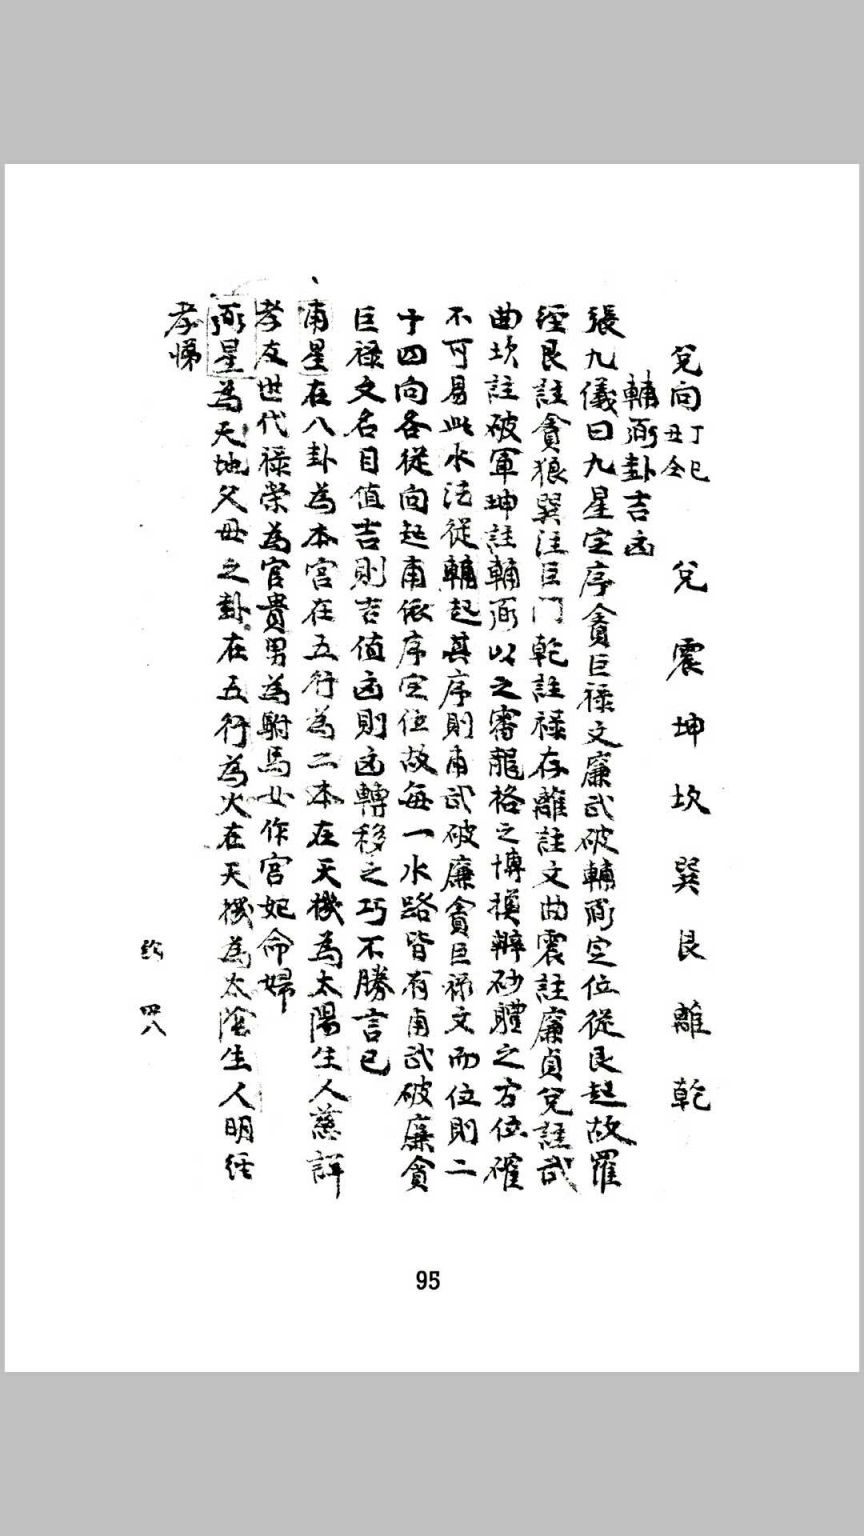 兌向丁巳丑全 兌 震 坤 坎 巽 艮 離 乾
輔弼卦吉凶
張九儀曰九星定序貪巨祿文廉武破輔弼定位從艮起故羅
經艮註貪狼巽注巨門乾註祿存離註文曲震註廉貞兌註武
曲坎註破軍坤註輔弼以之審龍格之博換辨砂體之方位確
不可易此水法從輔起其序則甫武破廉貪巨祿文而位則二
十四向各從向起甫依序定位故每一水路皆有甫武破廉貪
巨祿文名目值吉則吉值凶則凶轉移之巧不勝言已
甫星在八卦為本宮在五行為二木在天機為太陽生人慈詳
孝友世代祿榮為官貴男為駙馬女作宮妃命婦
弼星為天地父母之卦在五行為火在天機為太陰生人明經
孝悌
四八
95